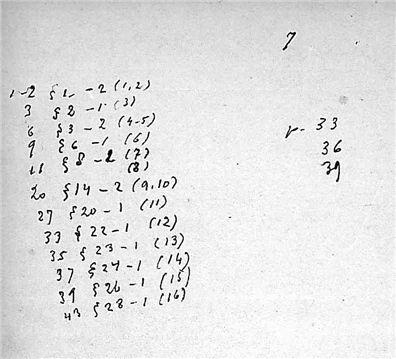 7
1-2 § 1 - 2 (1,2)
3 § 2 - 1 (3)
6 § 3 - 2 (4-5)
9 § 6 - 1 (6)
11 § 8 - 2 (7)
(8)
20 § 14 - 2 (9,10)
27 § 20 - 1 (11)
33 § 22 - 1 (12)
35 § 23 - 1 (13)
37 § 24 - 1 (14)
39 § 26 - 1 (15)
43 § 28 - 1 (16)
33
36
39